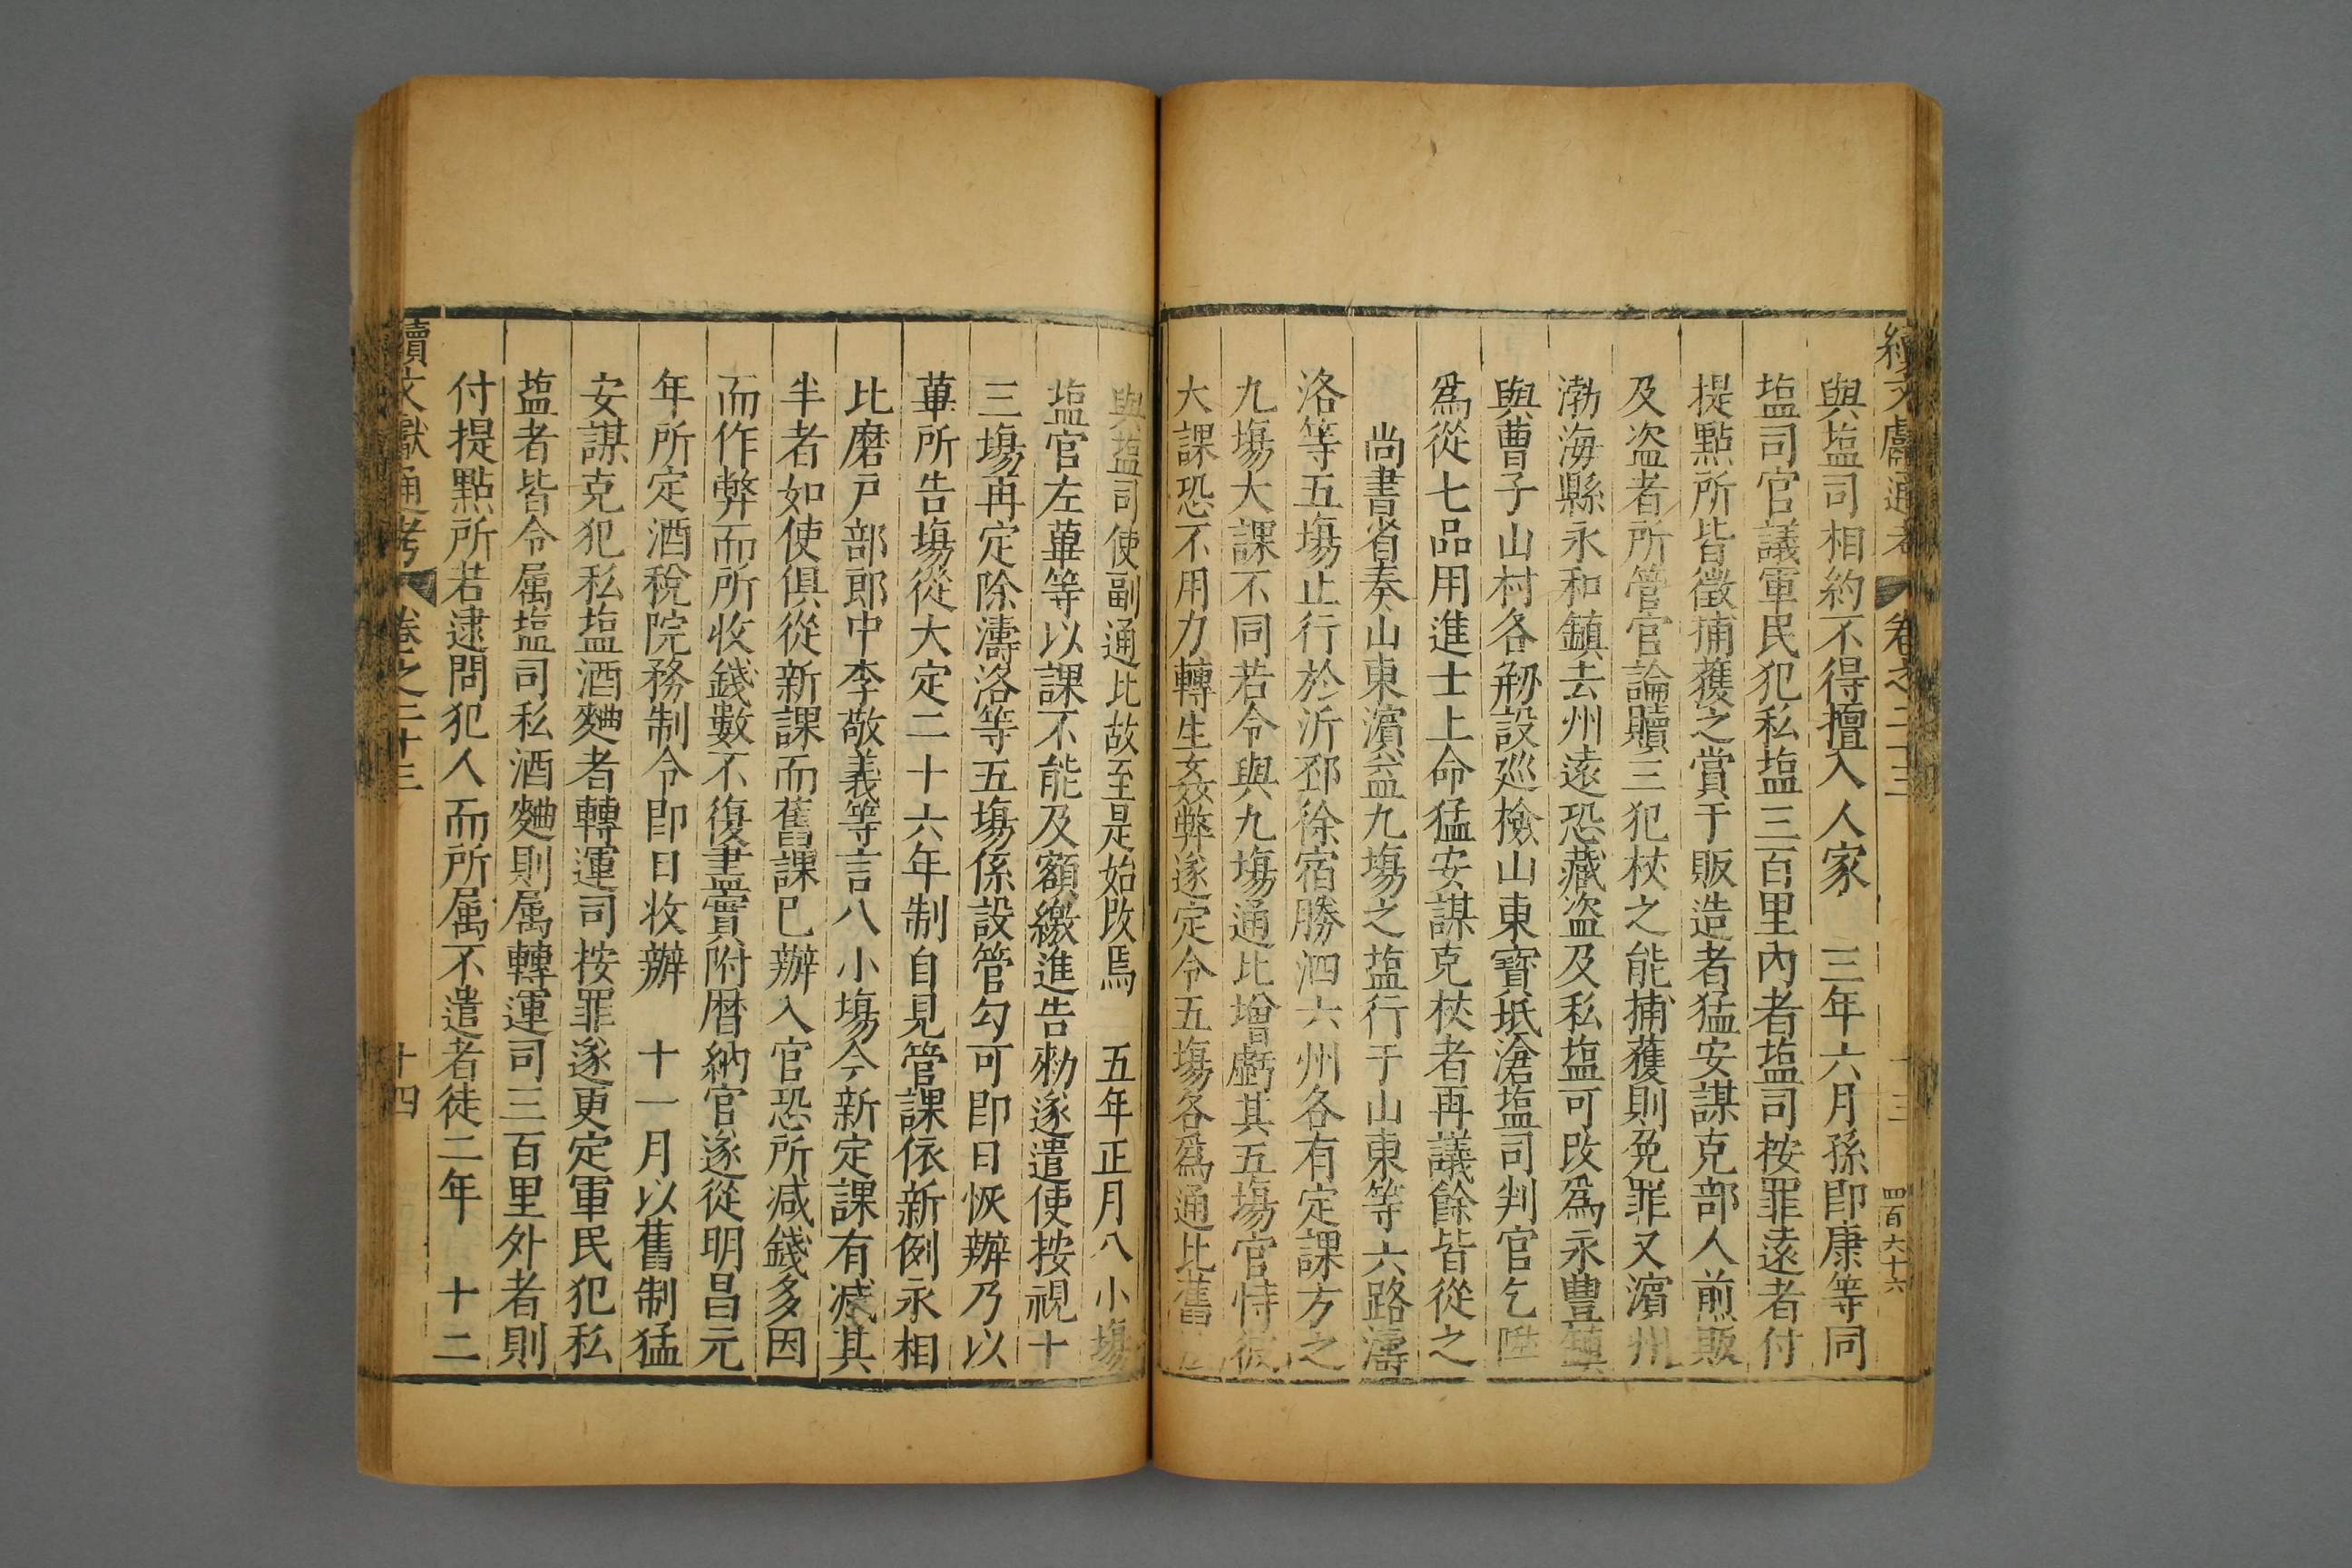 續文獻通考 卷之二十三 十三 四百六十六
與塩司相約不得擅入人家 三年六月孫即康等同
塩司官議軍民犯私塩三百里內者塩司按罪遠者付
提點所皆徵捕獲之賞于販造者猛安謀克部人煎販
及盗者所管官論贖三犯杖之能捕獲則免罪又濵州
渤海縣永和鎮去州遠恐藏盗及私塩可改爲永豊鎮
與曹子山村各剏設廵檢山東寳坻滄塩司判官乞陞
爲從七品用進士上命猛安謀克杖者再議餘皆從之
尚書省奏山東濵益九塲之塩行于山東等六路濤
洛等五塲止行於沂邳徐宿滕泗六州各有定課方之
九塲大課不同若令與九塲通比增虧其五塲官恃彼
大課恐不用力轉生姦弊遂定令五塲各爲通比舊
與塩司使副通比故至是始改焉 五年正月八小塲
塩官左蓽等以課不能及額繳進告勑遂遣使按視十
三塲再定除濤洛等五塲係設管勾可即日恢辦乃以
蓽所告塲從大定二十六年制自見管課依新例永相
比磨戸部郎中李敬義等言八小塲今新定課有减其
半者如使俱從新課而舊課已辦入官恐所减錢多因
而作弊而所收錢數不復盡實附暦納官遂從明昌元
年所定酒稅院務制令即日收辦 十一月以舊制猛
安謀克犯私塩酒麯者轉運司按罪遂更定軍民犯私
塩者皆令属塩司私酒麯則属轉運司三百里外者則
付提點所若逮問犯人而所属不遣者徒二年 十二
續文獻通考 卷之二十三 十四